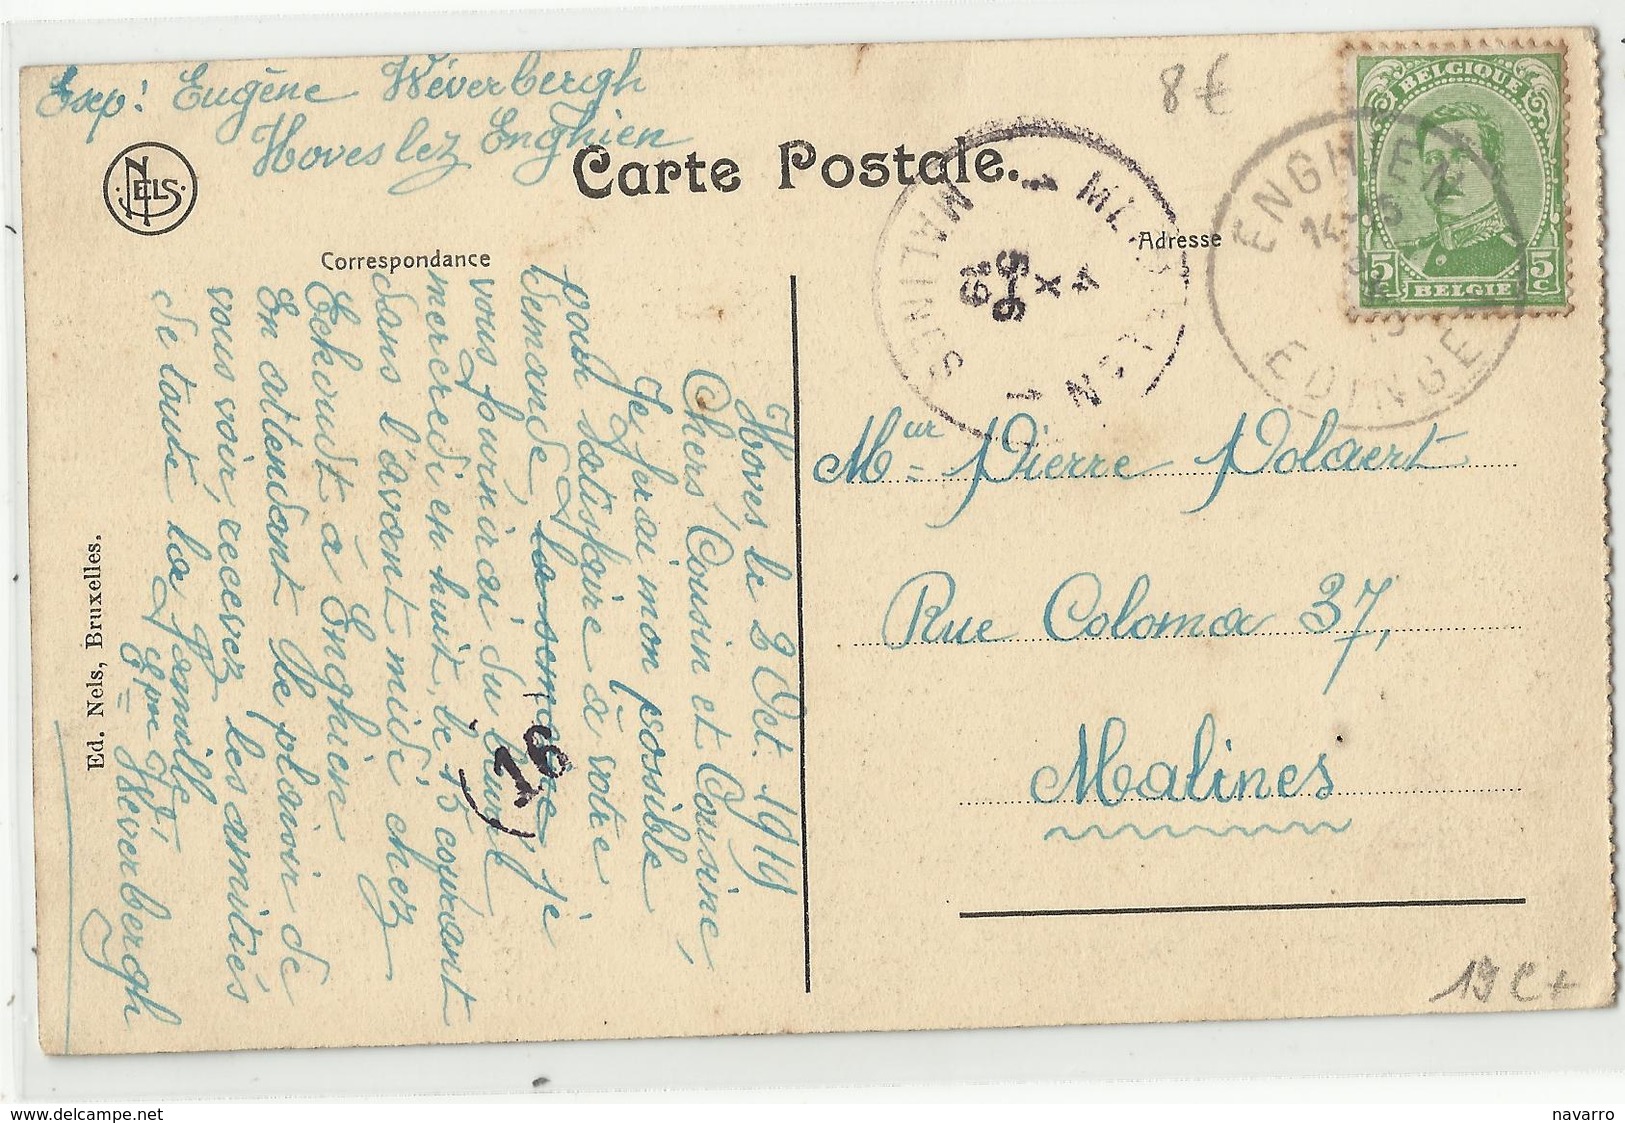 Exp: Eugène Wéverbergh
Hoves lez Enghien
NELS
Carte Postale.
Correspondance
Adresse
8 €
BELGIQUE
5 5
c c
BELGIE
ENGHIEN
14-15
EDINGEN
MECHELEN 1
4
X
5-6
19
1 MALINES
Hoves le 2 Oct. 1919
Chers Cousin et Cousine,
Je ferai mon possible
pour satisfaire à votre
demande, la semaine je
vous fournirai du beurre
mercredi en huit, le 15 courant
dans l'avant midi chez
Eckoudt à Enghien
En attendant le plaisir de
vous voir, recevez les amitiés
de toute la famille
Eug Wéverbergh
16
Mr Pierre Polaert
Rue Coloma 37,
Malines
Ed. Nels, Bruxelles.
delcampe.net
navarro